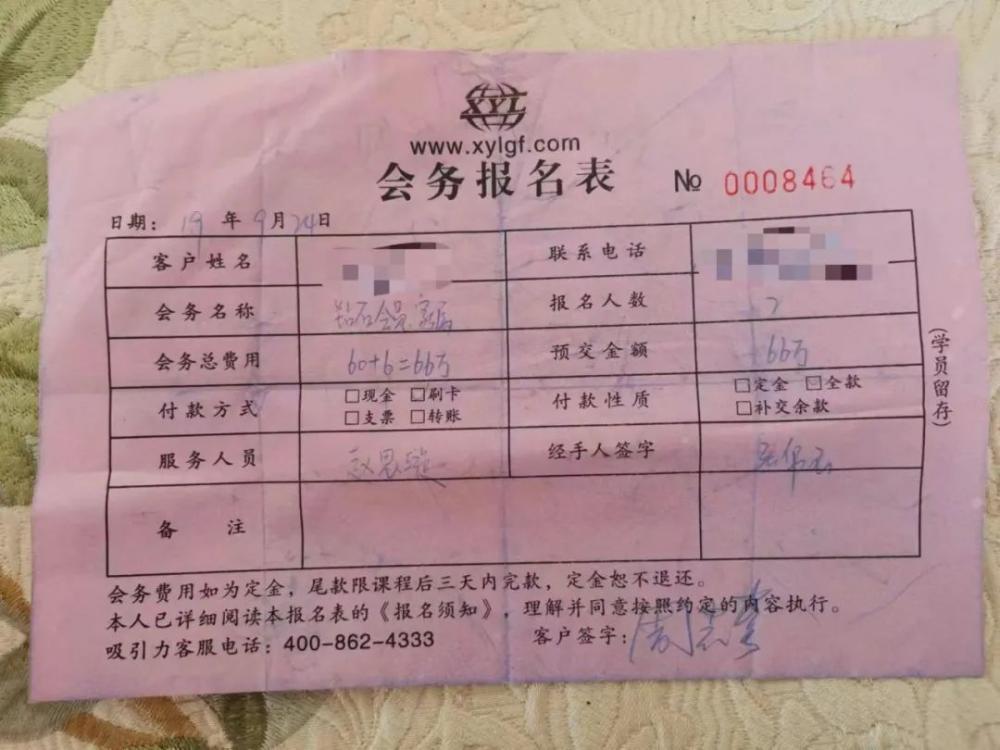 XYL
www.xylgf.com
会务报名表 № 0008464
日期: 19 年 9 月 24 日
客户姓名 联系电话
会务名称 钻石会员 家属 报名人数
会务总费用 60+6=66万 预交金额 66万
付款方式 □现金 □刷卡 □支票 □转账 付款性质 □定金 ☑全款 □补交余款
服务人员 经手人签字
备 注
(学员留存)
会务费用如为定金，尾款限课程后三天内完款，定金恕不退还。
本人已详细阅读本报名表的《报名须知》，理解并同意按照约定的内容执行。
吸引力客服电话：400-862-4333 客户签字：